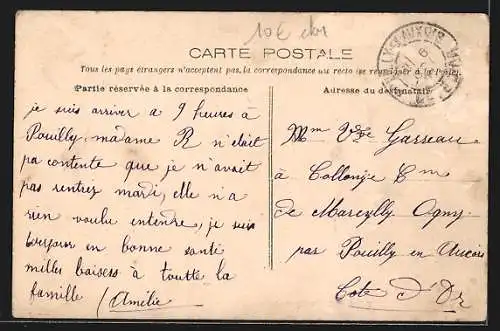 10€
CARTE POSTALE
Tous les pays étrangers n'acceptent pas la correspondance au recto (se renseigner à la Poste).
Partie réservée à la correspondance
je suis arriver a 9 heures à
Pouilly, madame R n'était
pa contente que je n'avait
pas rentrez mardi, elle n'a
rien voulu entendre, je suis
toujours en bonne santé
milles baisers à toutte la
famille / Amélie
Adresse du destinataire
Mme Vve Garreau
à Collonge
de Mareylly Ogny
par Pouilly en Auxois
Cote d'Or